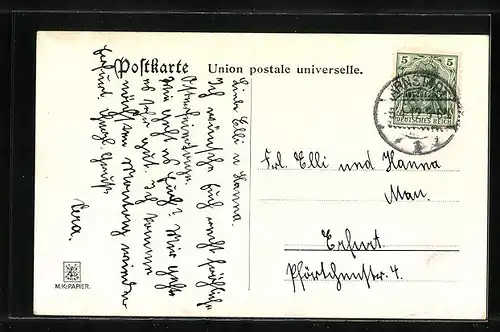 Postkarte
Union postale universelle.
5 5
DEUTSCHES REICH
Liebe Elli u. Hanna.
Ich wünsche Euch recht fröhliche
Osterfeiertage.
Wie geht es Euch? Mir geht
es sehr gut. Ich komme
nächsten Montag wieder
Gruß
Vera.
Frl. Elli und Hanna
May.
Erfurt
Pförtchenstr. 4.
M.K. PAPIER.